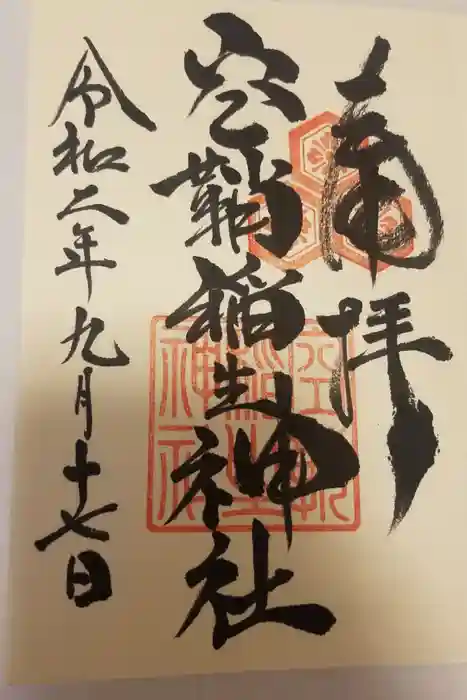 奉拝
空鞘稲生神社
令和二年九月十七日
空鞘稲生神社